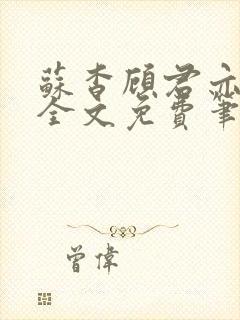 蘇杳顧君亦
全文免費筆
曾偉